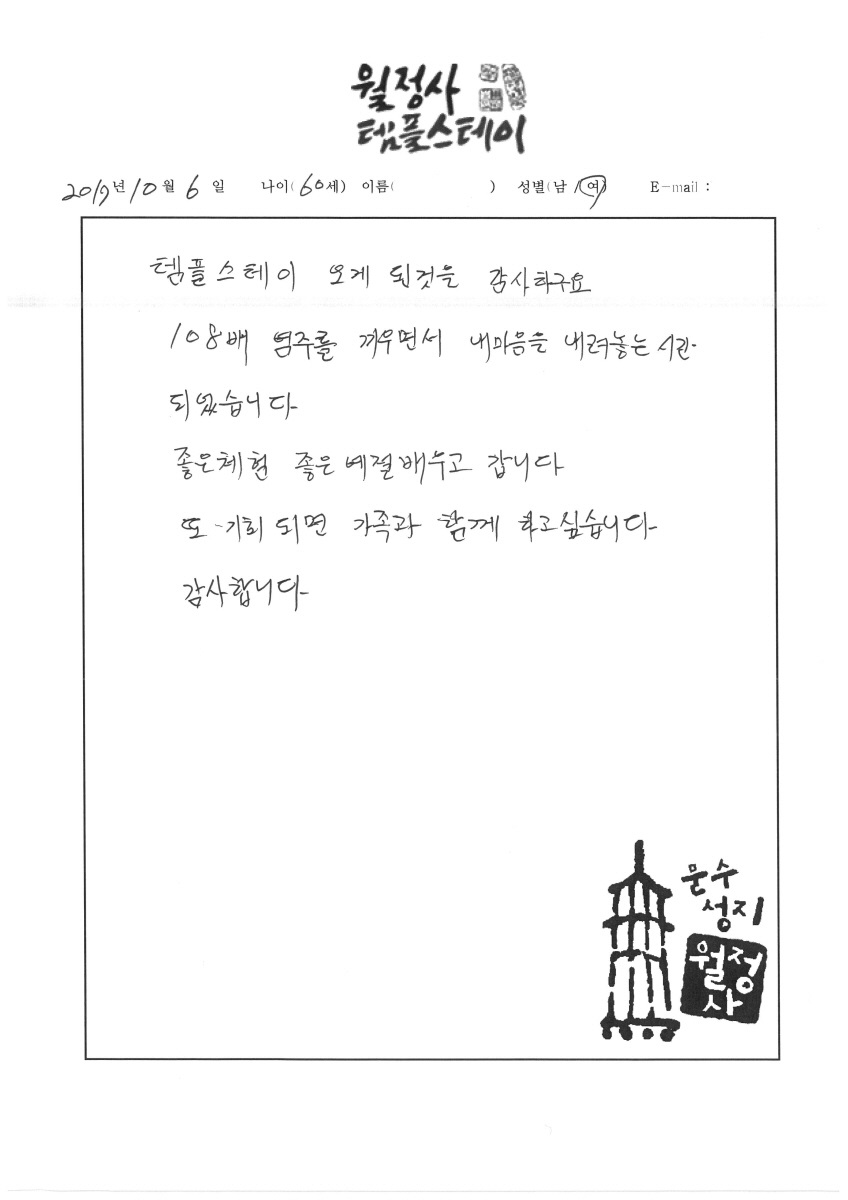 월정사
템플스테이
2019년 10월 6일 나이(60세) 이름( ) 성별(남/여) E-mail :
템플스테이 오게 된것을 감사하구요
108배 염주를 끼우면서 내마음을 내려놓는 시간
되었습니다
좋은체험 좋은예절배우고 갑니다
또 기회 되면 가족과 함께 하고싶습니다
감사합니다
문수
성지
월정
사